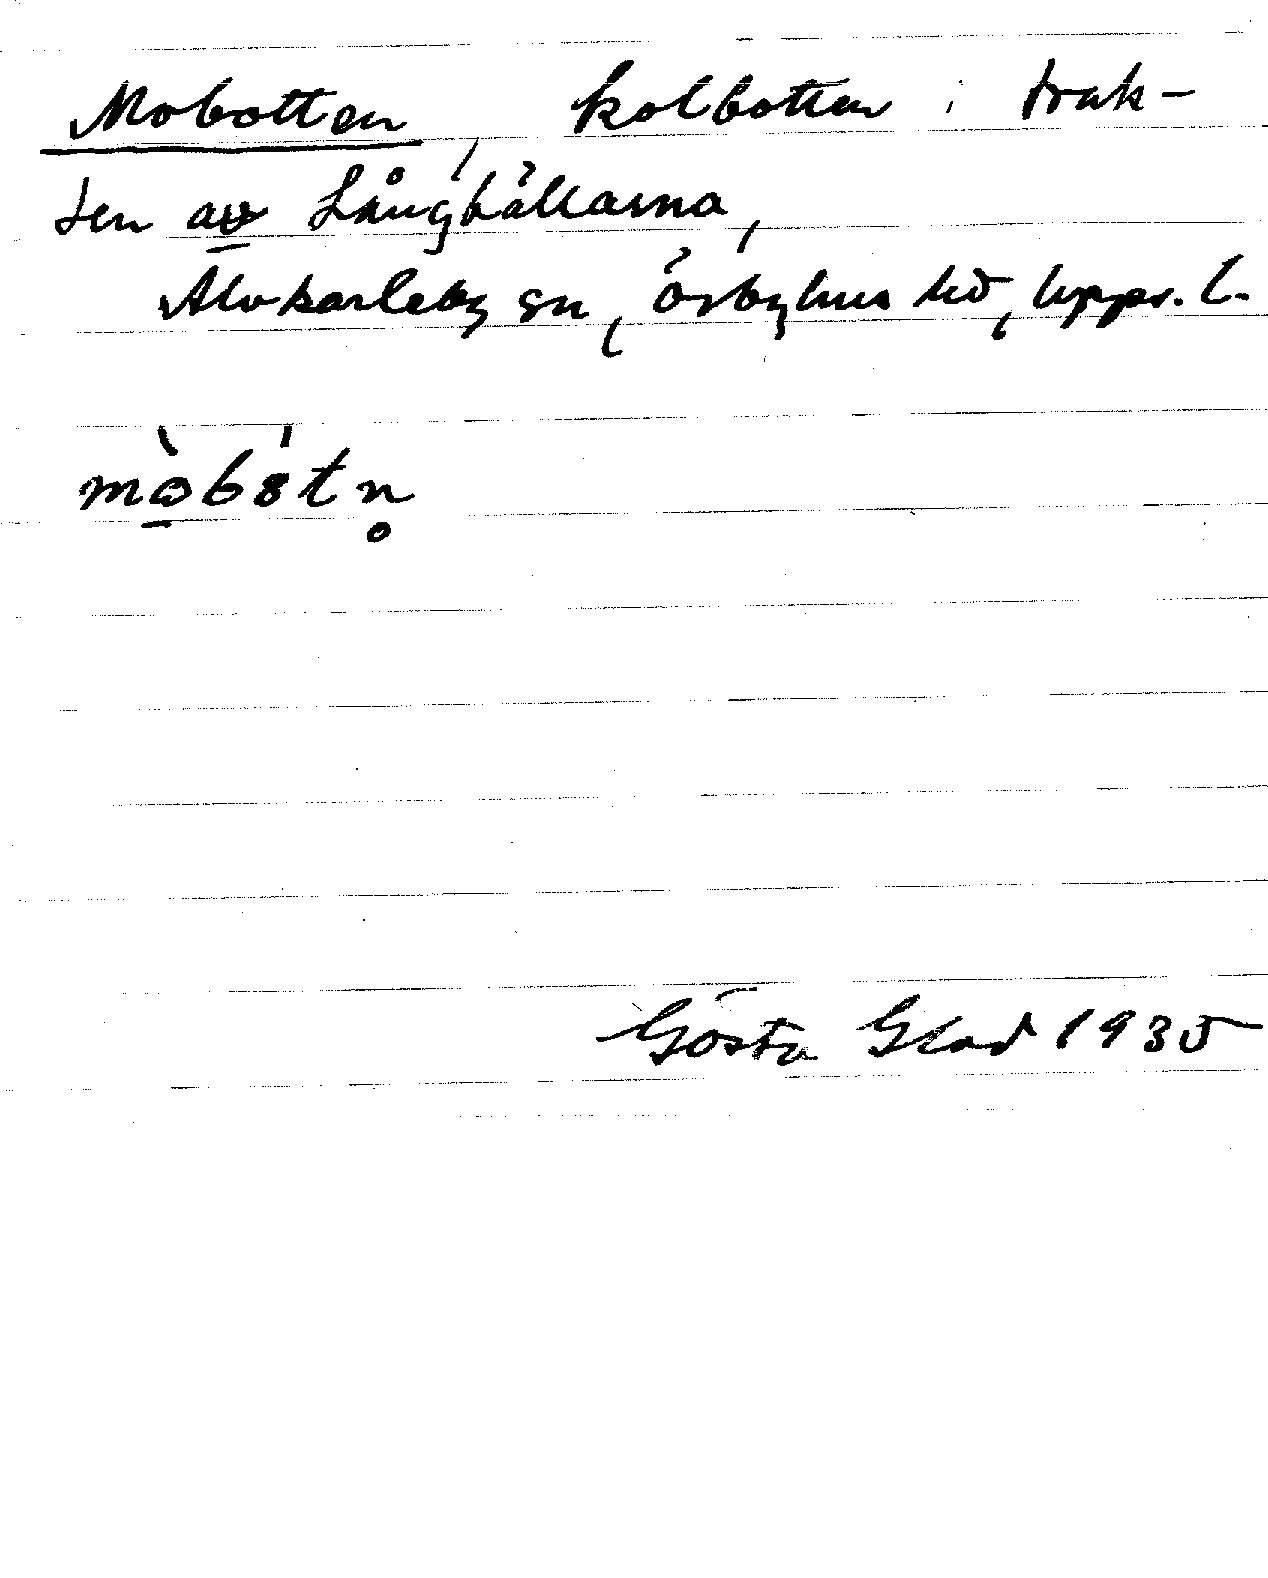 Mobotten, kolbotten i trak-
ten av Långhällarna,
Älvkarleby sn, Örbyhus hd, Upps. l.
mòbótn̥
Gösta Glad 1935